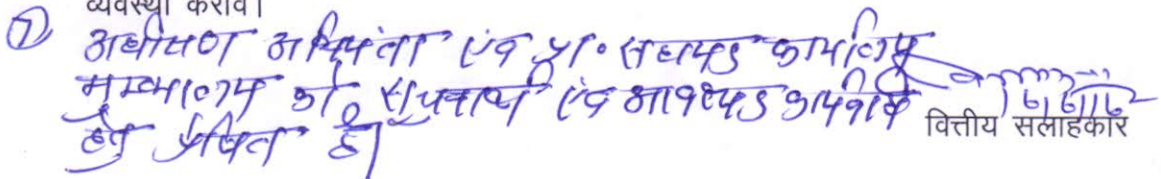 व्यवस्था करावे।
⑦ अधीक्षण अभियंता एंव प्रा. सहायक कार्यालय
मुख्यालय को सूचनार्थ एंव आवश्यक कार्यवाही
हेतु प्रेषित है।
वित्तीय सलाहकार